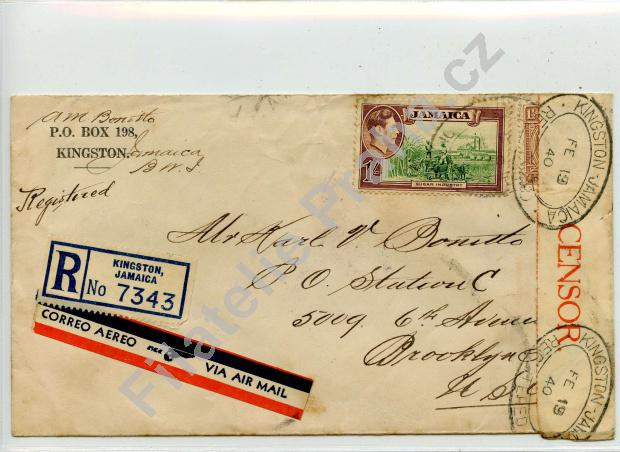 A M Bonitto
P.O. BOX 198,
KINGSTON, Jamaica
B.W.I.
Registered
JAMAICA
1/-
SUGAR INDUSTRY
R
KINGSTON,
JAMAICA
No 7343
CORREO AEREO
VIA AIR MAIL
Mr Karl V. Bonitto
P O. Station C
5009 6th Avenue
Brooklyn
U.S.
CENSOR.
KINGSTON-JAMAICA
FE 19
40
REGISTERED
KINGSTON-JAM
FE 19
40
REGISTERED
Filatelie Praha.cz